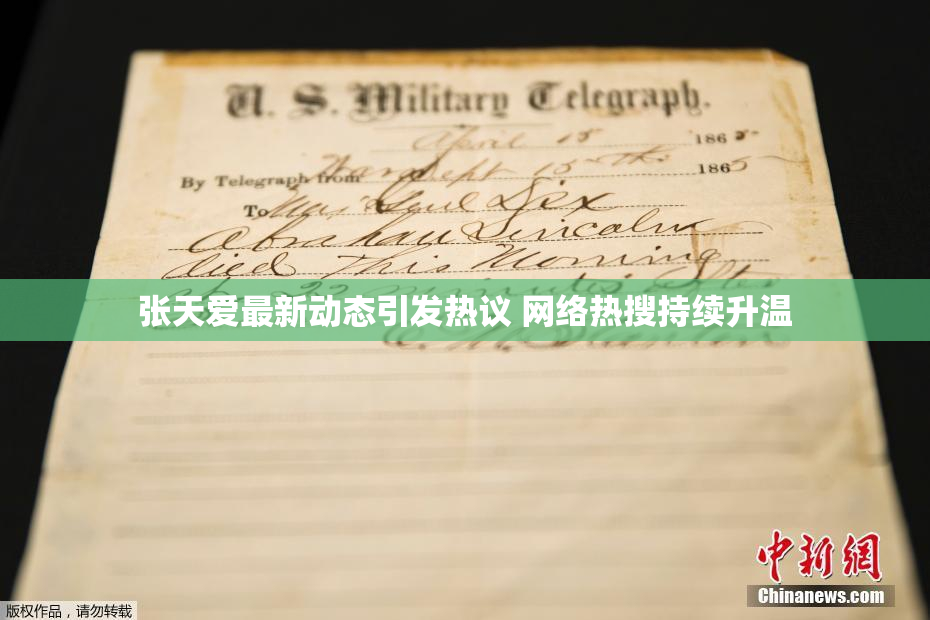 U. S. Military Telegraph.
April 15 1865
By Telegraph from War Dept 15th 1865
To Maj Genl Dix
Abraham Lincoln
died This Morning
at 22 minutes after
张天爱最新动态引发热议 网络热搜持续升温
E. M. Stanton
中新网
Chinanews.com
版权作品,请勿转载